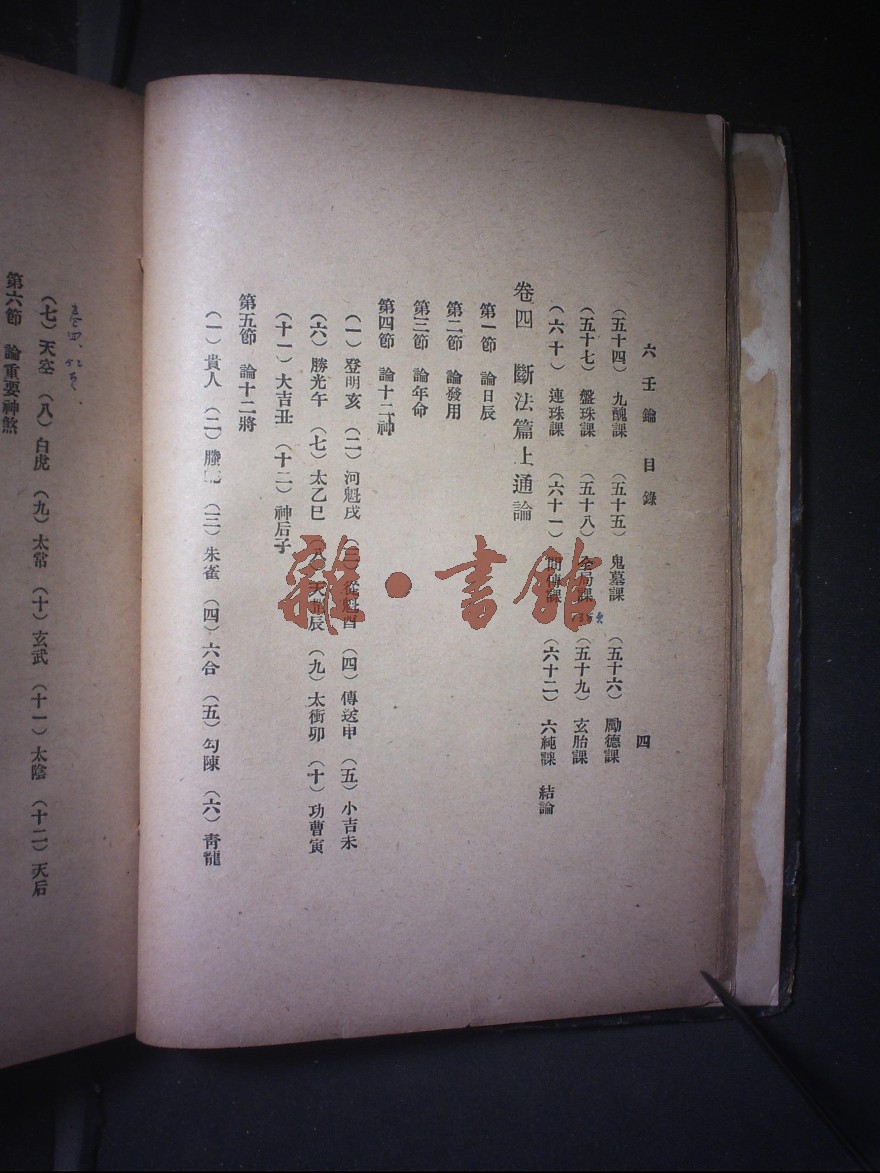 六壬鑰 目錄 四
（五十四） 九醜課 （五十五） 鬼墓課 （五十六） 勵德課
（五十七） 盤珠課 （五十八） 全局課 （五十九） 玄胎課
（六十） 連珠課 （六十一） 間傳課 （六十二） 六純課 結論
卷四 斷法篇上通論
第一節 論日辰
第二節 論發用
第三節 論年命
第四節 論十二神
（一）登明亥 （二）河魁戌 （三）從魁酉 （四）傳送申 （五）小吉未
（六）勝光午 （七）太乙巳 （八）天罡辰 （九）太衝卯 （十）功曹寅
（十一）大吉丑 （十二）神后子
第五節 論十二將
（一）貴人 （二）螣蛇 （三）朱雀 （四）六合 （五）勾陳 （六）青龍
（七）天空 （八）白虎 （九）太常 （十）玄武 （十一）太陰 （十二）天后
第六節 論重要神煞
雜·書館